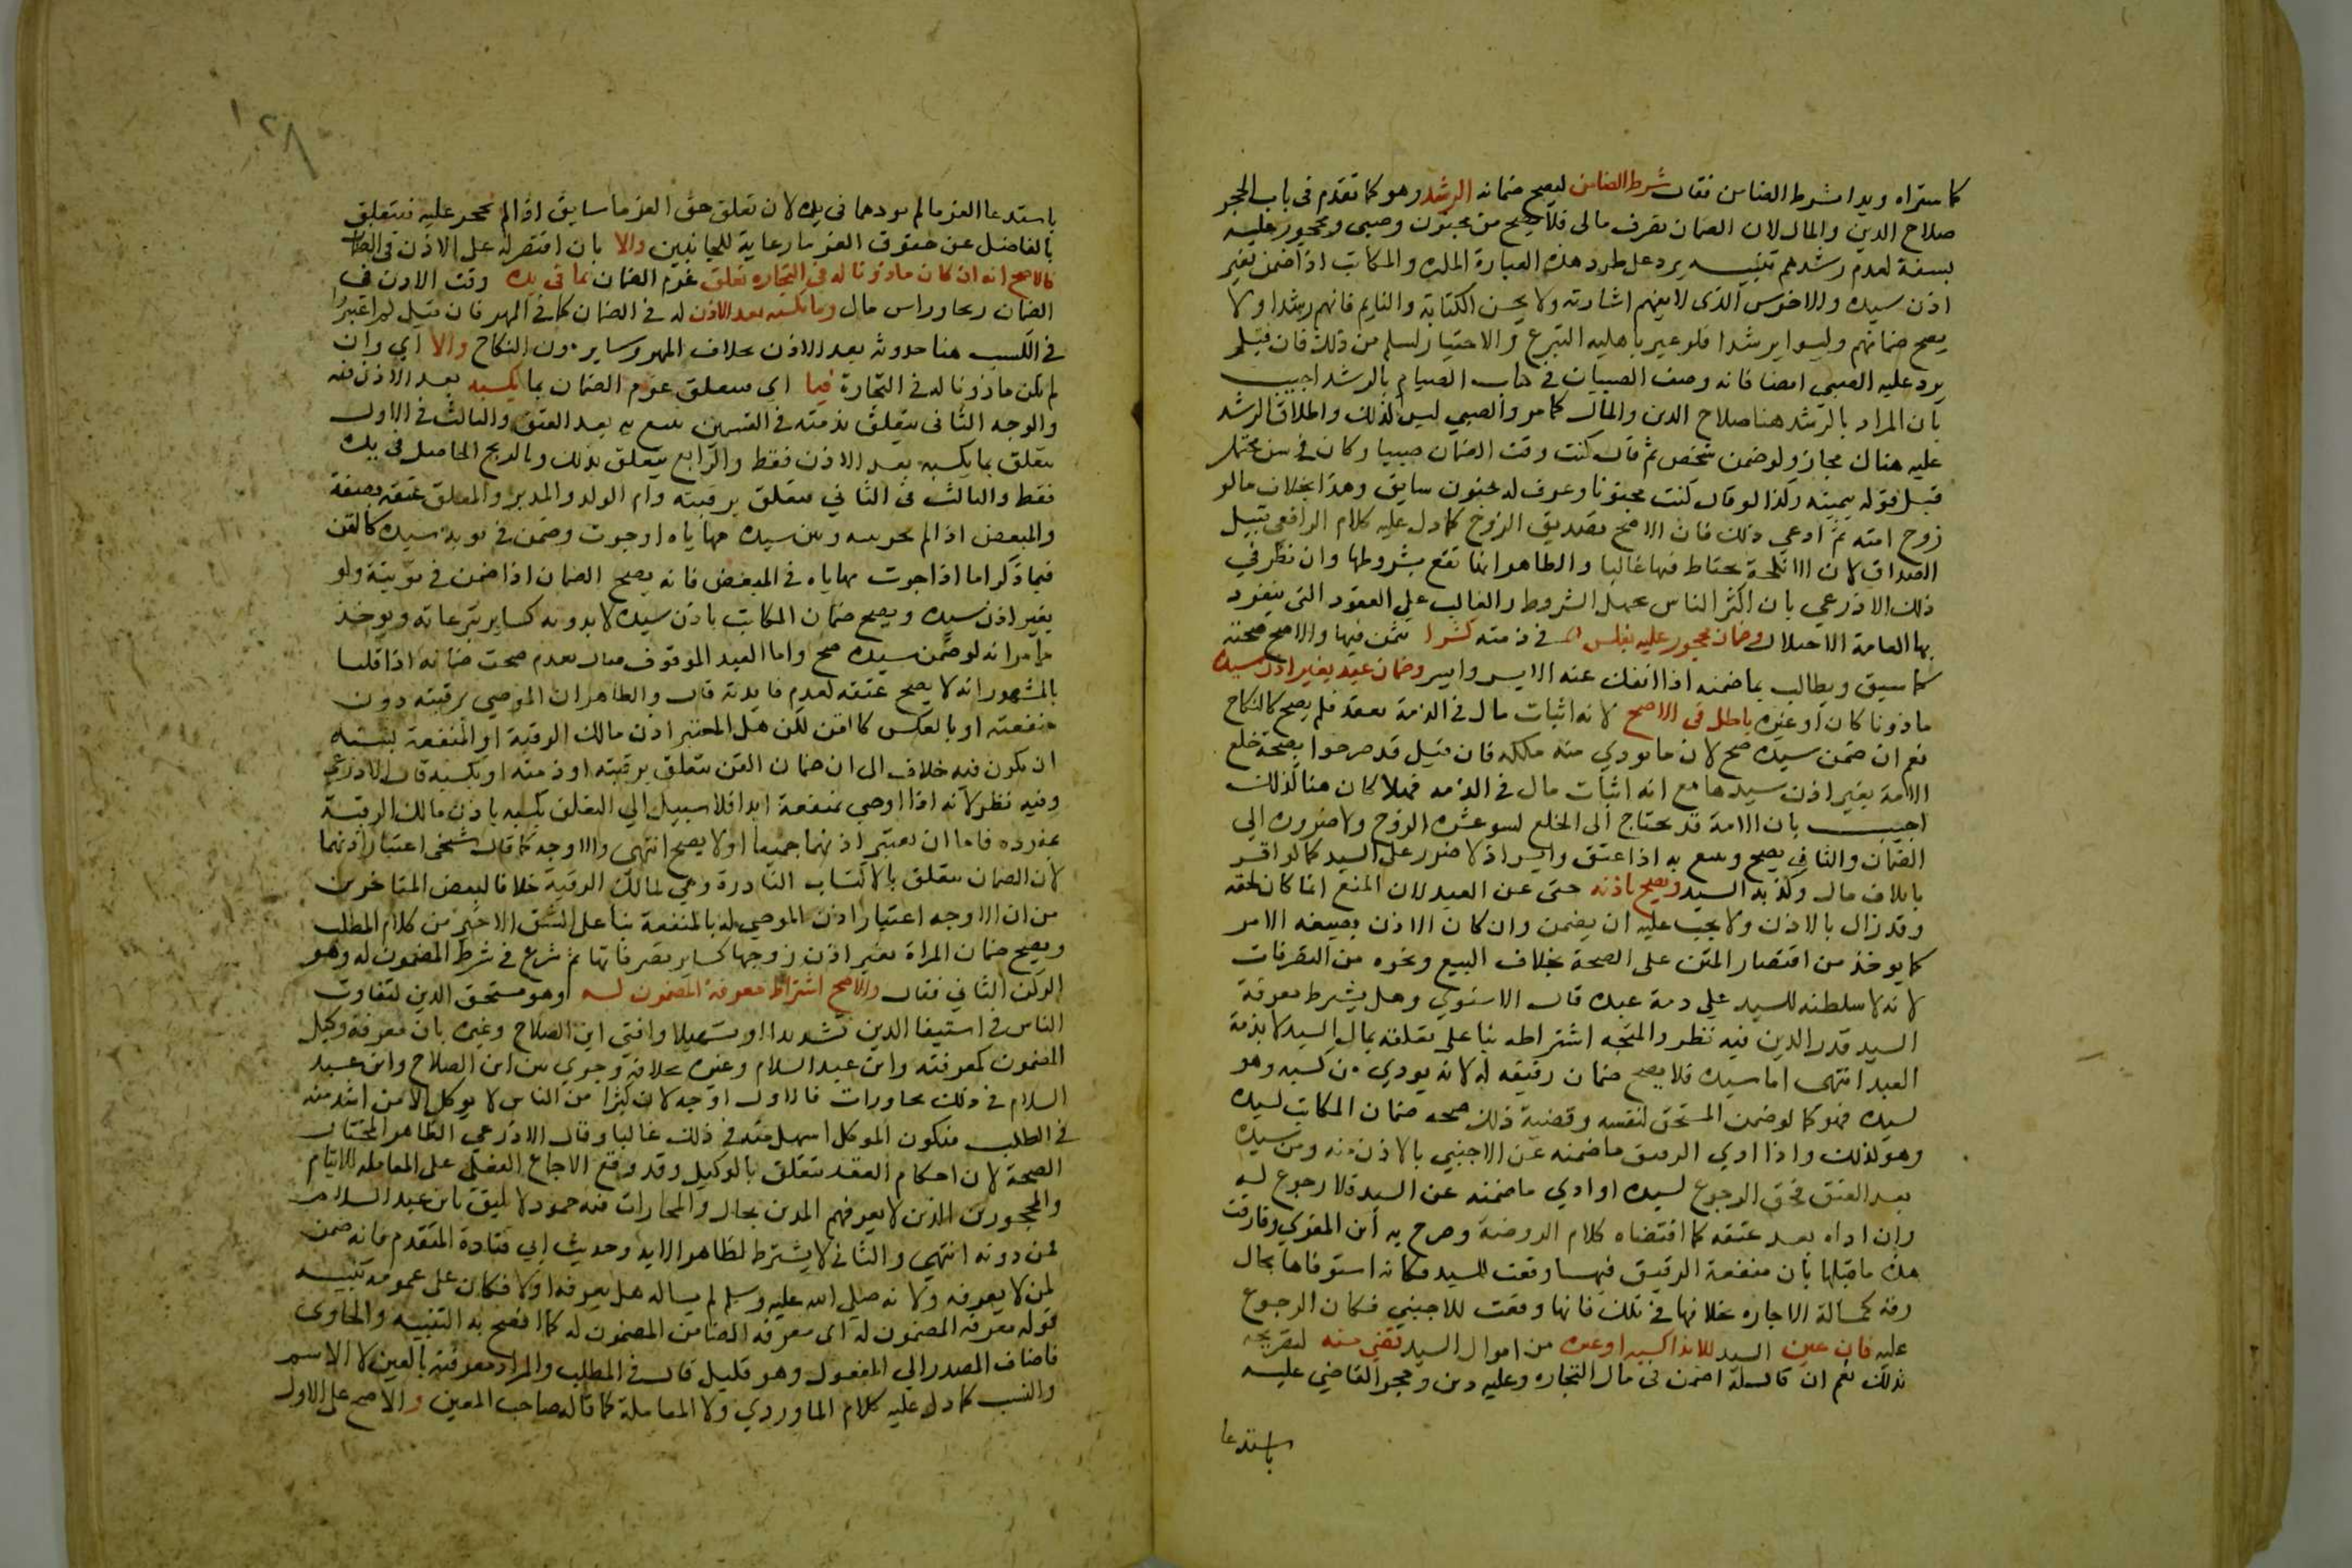 كما ستراه وبدا بشرط الضامن فقال شرط الضامن ليصح ضمانه الرشد وهو كما تقدم في باب الحجر
صلاح الدين والمال لان الضمان تصرف مالى فلا يصح من مجنون وصبى ومحجور عليه
بسفه لعدم رشدهم تنبيه يرد على طرد هذه العبارة المكره والمكاتب اذا ضمن بغير
اذن سيده والاخرس الذى لا يفهم اشارته ولا يحسن الكتابة والنايم فانهم رشدا ولا
يصح ضمانهم وليسوا برشدا فلو عبر باهليه التبرع والاختيار لسلم من ذلك فان قيل
يرد عليه الصبى ايضا فانه وصف الصبيان في كتاب الصيام بالرشد اجيب
بان المراد بالرشد هنا صلاح الدين والمال كما مر والصبي ليس كذلك واطلاق الرشد
عليه هناك مجاز ولو ضمن شخص ثم قال كنت وقت الضمان صبيا وكان في سن محتمل
قبل قوله بيمينه وكذا لو قال كنت مجنونا وعرف له جنون سابق وهذا بخلاف ما لو
زوج امته ثم ادعى ذلك فان الاصح تصديق الزوج كما دل عليه كلام الرافعي قبيل
الصداق لان الانكحة يحتاط فيها غالبا والظاهر انها تقع بشروطها وان نظر في
ذلك الاذرعي بان اكثر الناس يجهل الشروط والغالب على العقود التي ينفرد
بها العامة الاختلال وضمان محجور عليه بفلس في ذمته كشرا بثمن فيها والاصح صحته
كما سبق ويطالب بما ضمنه اذا انفك عنه الحجر وايسر وضمان عبد بغير اذن سيده
ماذونا كان او غيره باطل في الاصح لانه اثبات مال في الذمة بعقد فلم يصح كالنكاح
نعم ان ضمن سيده صح لان ما يودي منه ملكه فان قيل قد صرحوا بصحة خلع
الامة بغير اذن سيدها مع انه اثبات مال في الذمه فهلا كان هنا كذلك
اجيب بان الامة قد تحتاج الى الخلع لسو عشره الزوج ولا ضروره الي
الضمان والثاني يصح ويتبع به اذا عتق وايسر اذ لا ضرر على السيد كما لو اقر
باتلاف مال وكذبه السيد ويصح باذنه حتى عن العبد لان المنع انما كان لحقه
وقد زال بالاذن ولا يجب عليه ان يضمن وان كان الاذن بصيغه الامر
كما يوخذ من اقتصار المتن على الصحة بخلاف البيع ونحوه من التصرفات
لانه لا سلطنه للسيد علي ذمة عبده قال الاسنوي وهل يشترط معرفة
السيد قدر الدين فيه نظر والمتجه اشتراطه بنا على تعلقه بمال السيد لا بذمة
العبد انتهى اما سيده فلا يصح ضمان رقيقه له لانه يودي من كسبه وهو
لسيده فهو كما لو ضمن المستحق لنفسه وقضية ذلك صحه ضمان المكاتب لسيده
وهو كذلك واذا ادي الرقيق ما ضمنه عن الاجنبي بالاذن منه ومن سيده
بعد العتق فحق الرجوع لسيده او ادي ما ضمنه عن السيد فلا رجوع له
وان اداه بعد عتقه كما اقتضاه كلام الروضة وصرح به ابن المقري وفارقت
هذه ما قبلها بان منفعة الرقيق فيها وقعت للسيد فكانه استوفاها بحال
رقه كمسالة الاجاره بخلافها في تلك فانها وقعت للاجنبي فكان الرجوع
عليه فان عين السيد للاذا كسبه او غيره من اموال السيد قضي منه لتصريحه
بذلك نعم ان قال له اضمن في مال التجاره وعليه دين وحجر القاضي عليه
باستدعا
١٢٨
باستدعا الغرما لم يود مما في يده لان تعلق حق الغرما سابق اذا لم يحجر عليه فيتعلق
بالفاضل عن حقوق الغرما رعاية للجانبين والا بان اقتصر له على الاذن في الضمان
فالاصح انه ان كان ماذونا له في التجاره تعلق غرم الضمان بما في يده وقت الاذن في
الضمان ربحا وراس مال وما يكسبه بعد الاذن له في الضمان كما في المهر فان قيل لم اعتبروا
في الكسب هنا حدوثه بعد الاذن بخلاف المهر وساير مون النكاح والا اي وان
لم يكن ماذونا له في التجارة فبما اي فيتعلق غرم الضمان بما يكسبه بعد الاذن فيه
والوجه الثاني يتعلق بذمته في القسمين يتبع به بعد العتق والثالث في الاول
يتعلق بما يكسبه بعد الاذن فقط والرابع يتعلق بذلك وبالربح الحاصل في يده
فقط والثالث في الثاني يتعلق برقبته وام الولد والمدبر والمعلق عتقه بصفة
والمبعض اذا لم يجر بينه وبين سيده مهاياه او جرت وضمن في نوبة سيده كالقن
فيما ذكر اما اذا جرت مهاياه في المبعض فانه يصح الضمان اذا ضمن في نوبته ولو
بغير اذن سيده ويصح ضمان المكاتب باذن سيده لا بدونه كساير تبرعاته ويوخذ
مما مر انه لو ضمن سيده صح واما العبد الموقوف فيقال بعدم صحت ضمانه اذا قلنا
بالمشهور انه لا يصح عتقه لعدم فايدته قال والظاهر ان الموصي برقبته دون
منفعته او بالعكس كالقن لكن هل المعتبر اذن مالك الرقبة او المنفعة يشبه
ان يكون فيه خلاف الى ان ضمان القن يتعلق برقبته او ذمته او بكسبه قال الاذرعي
وفيه نظر لانه اذا اوصى بمنفعة ابدا فلا سبيل الي التعلق بكسبه باذن مالك الرقبة
بمفرده فاما ان يعتبر اذنهما جميعا او لا يصح انتهى والاوجه كما قال شيخي اعتبار اذنهما
لان الضمان يتعلق بالاكتساب النادرة وهي لمالك الرقبة خلافا لبعض المتاخرين
من ان الاوجه اعتبار اذن الموصي له بالمنفعة بنا على الشق الاخير من كلام المطلب
ويصح ضمان المراة بغير اذن زوجها كساير تصرفاتها ثم شرع في شرط المضمون له وهو
الركن الثاني فقال والاصح اشتراط معرفة المضمون له وهو مستحق الدين لتفاوت
الناس في استيفا الدين تشديدا او تسهيلا وافتي ابن الصلاح وغيره بان معرفة وكيل
المضمون كمعرفته وابن عبد السلام وغيره بخلافه وجري بين ابن الصلاح وابن عبد
السلام في ذلك محاورات فالاول اوجه لان كثيرا من الناس لا يوكل الا من اشد منه
في الطلب فيكون الموكل اسهل منه في ذلك غالبا وقال الاذرعي الظاهر المختار
الصحة لان احكام العقد تتعلق بالوكيل وقد وقع الاجماع الفعلي على المعامله للايتام
والمحجورين الذين لا يعرفهم المدين بحال والمحارات فيه جمود لا يليق بابن عبد السلام
لمن دونه انتهي والثاني لا يشترط لظاهر الايه وحديث ابي قتادة المتقدم فانه ضمن
لمن لا يعرفه ولانه صلى الله عليه وسلم لم يساله هل يعرفه اولا فكان على عمومه تنبيه
قوله معرفة المضمون له اى معرفه الضامن المضمون له كما افصح به التنبيه والحاوى
فاضاف المصدر الي المفعول وهو قليل قال في المطلب والمراد معرفته بالعين لا الاسم
والنسب كما دل عليه كلام الماوردي ولا المعاملة كما قاله صاحب المعين والاصح على الاول